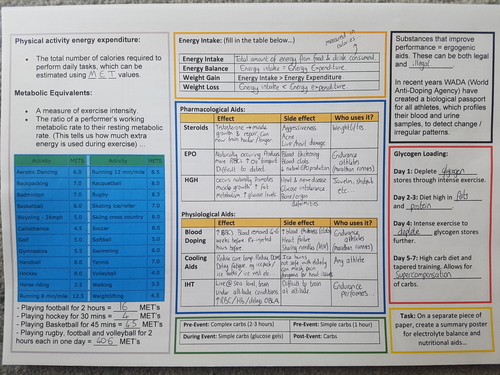 Physical activity energy expenditure:
The total number of calories required to
perform daily tasks, which can be
estimated using MET values.
Metabolic Equivalents:
A measure of exercise intensity.
The ratio of a performer's working
metabolic rate to their resting metabolic
rate. (This tells us how much extra
energy is used during exercise) ...
Activity METS Activity METS
Aerobic Dancing 6.0 Running 12 min/mile 8.5
Backpacking 7.0 Racquetball 8.0
Badminton 7.0 Rugby 8.5
Basketball 6.0 Skating ice/roller 7.0
Bicycling - 24mph 5.0 Skiing cross country 8.0
Calisthenics 4.5 Soccer 8.0
Golf 5.0 Softball 5.0
Gymnastics 5.5 Swimming 6.0
Handball 8.0 Tennis 7.0
Hockey 8.0 Volleyball 4.0
Horse riding 3.5 Walking 3.5
Running 8 min/mile 12.5 Weightlifting 4.5
- Playing football for 2 hours = 16 MET's
- Playing hockey for 30 mins = 4 MET's
- Playing Basketball for 45 mins = 4.5 MET's
- Playing rugby, football and volleyball for 2
hours each in one day = MET's
Energy Intake: (fill in the table below...)
measured in
calories
Energy Intake Total amount of energy from food & drink consumed.
Energy Balance Energy intake = Energy Expenditure
Weight Gain Energy Intake > Energy Expenditure
Weight Loss Energy intake < Energy expenditure
Pharmacological Aids:
Effect Side effect Who uses it?
Steroids Testosterone → muscle
growth & repair, can
train harder/longer
Aggressiveness
Acne
Liver/heart damage
EPO Naturally occurring. Produces
more RBCs
Difficult to detect.
Blood thickening
Blood clots
natural EPO production
Endurance
athletes
(marathon runners)
HGH
muscle growth ↑ fat
metabolism ↑ glucose levels
Heart & nerve disease
Glucose intolerance
Physiological Aids:
Effect Side effect Who uses it?
Blood
Doping
↑ RBCs. Blood removed 4-6
weeks before. Re-injected
hours before
Heart failure
Endurance
athletes
(marathon runners)
Cooling
Aids
Ice burns
Any athlete
IHT Live @ sea level, train
under altitude conditions
↑ RBC/Hb/delay OBLA
Difficult to train
at altitude.
Endurance
performers
Pre-Event: Complex carbs (2-3 hours) Pre-Event: Simple carbs (1 hour)
During Event: Simple carbs (glucose gels) Post-Event: Carbs
Substances that improve
performance = ergogenic
aids. These can be both legal
and illegal
In recent years WADA (World
Anti-Doping Agency) have
created a biological passport
for all athletes, which profiles
their blood and urine
samples, to detect change /
irregular patterns.
Glycogen Loading:
Day 1: Deplete glycogen
stores through intense exercise.
Day 2-3: Diet high in fats
and protein
Day 4: Intense exercise to
deplete glycogen stores
further.
Day 5-7: High carb diet and
tapered training. Allows for
supercompensation
of carbs.
Task: On a separate piece of
paper, create a summary poster
for electrolyte balance and
nutritional aids...